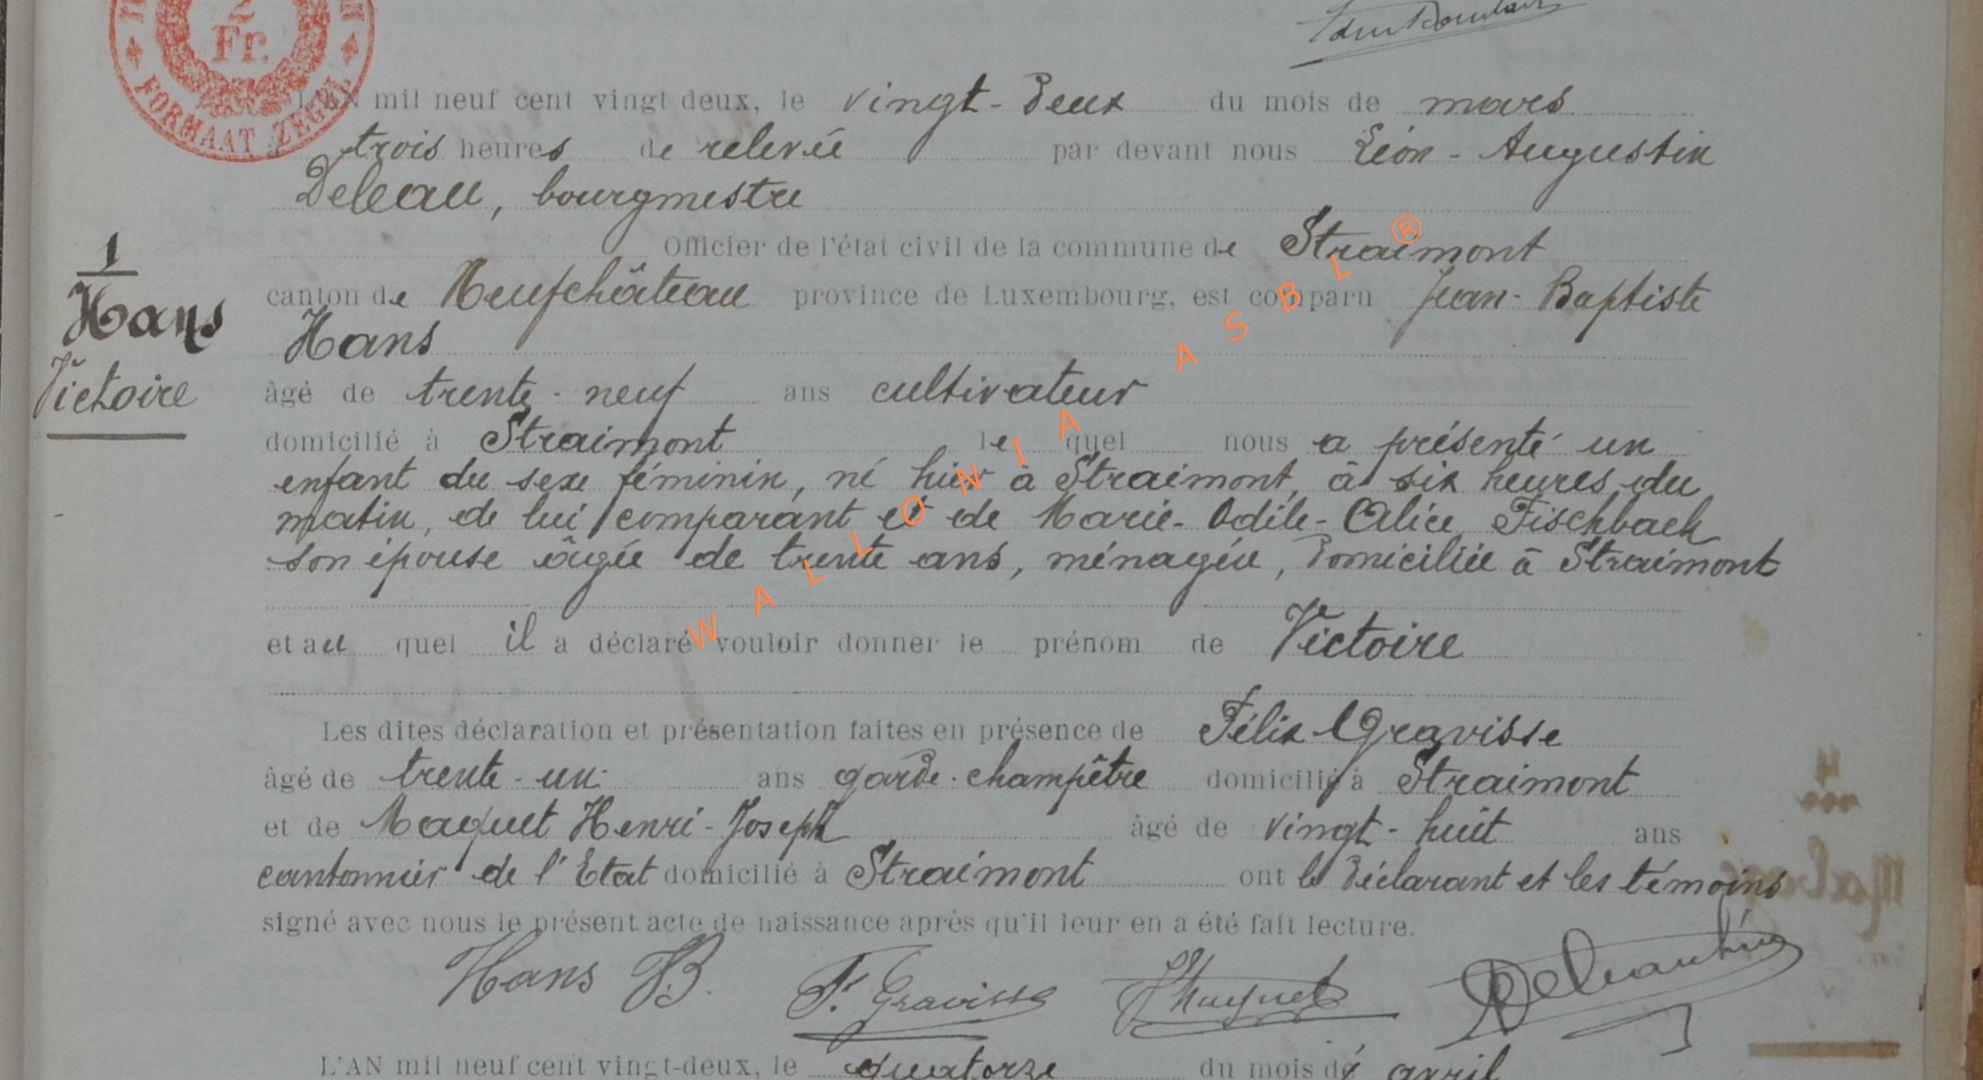 2
Fr.
FORMAAT ZEGEL
L'AN mil neuf cent vingt deux, le vingt-deux du mois de mars
trois heures de relevée par devant nous Léon-Augustin
Deleau, bourgmestre
Officier de l'état civil de la commune de Straimont
canton de Neufchâteau province de Luxembourg, est comparu Jean-Baptiste
Hans
1
Hans
Victoire
âgé de trente-neuf ans cultivateur
domicilié à Straimont le quel nous a présenté un
enfant du sexe féminin, né hier à Straimont, à six heures du
matin, de lui comparant et de Marie-Odile-Alice Fischbach
son épouse âgée de trente ans, ménagée, domiciliée à Straimont
et au quel il a déclaré vouloir donner le prénom de Victoire
Les dites déclaration et présentation faites en présence de Félix Gravisse
âgé de trente-un ans garde-champêtre domicilié à Straimont
et de Maquet Henri-Joseph âgé de vingt-huit ans
cantonnier de l'Etat domicilié à Straimont ont le déclarant et les témoins
signé avec nous le présent acte de naissance après qu'il leur en a été fait lecture.
Hans JB. F. Gravisse Maquet
L'AN mil neuf cent vingt-deux, le quatorze du mois de avril
WALLONIA ASBL ®